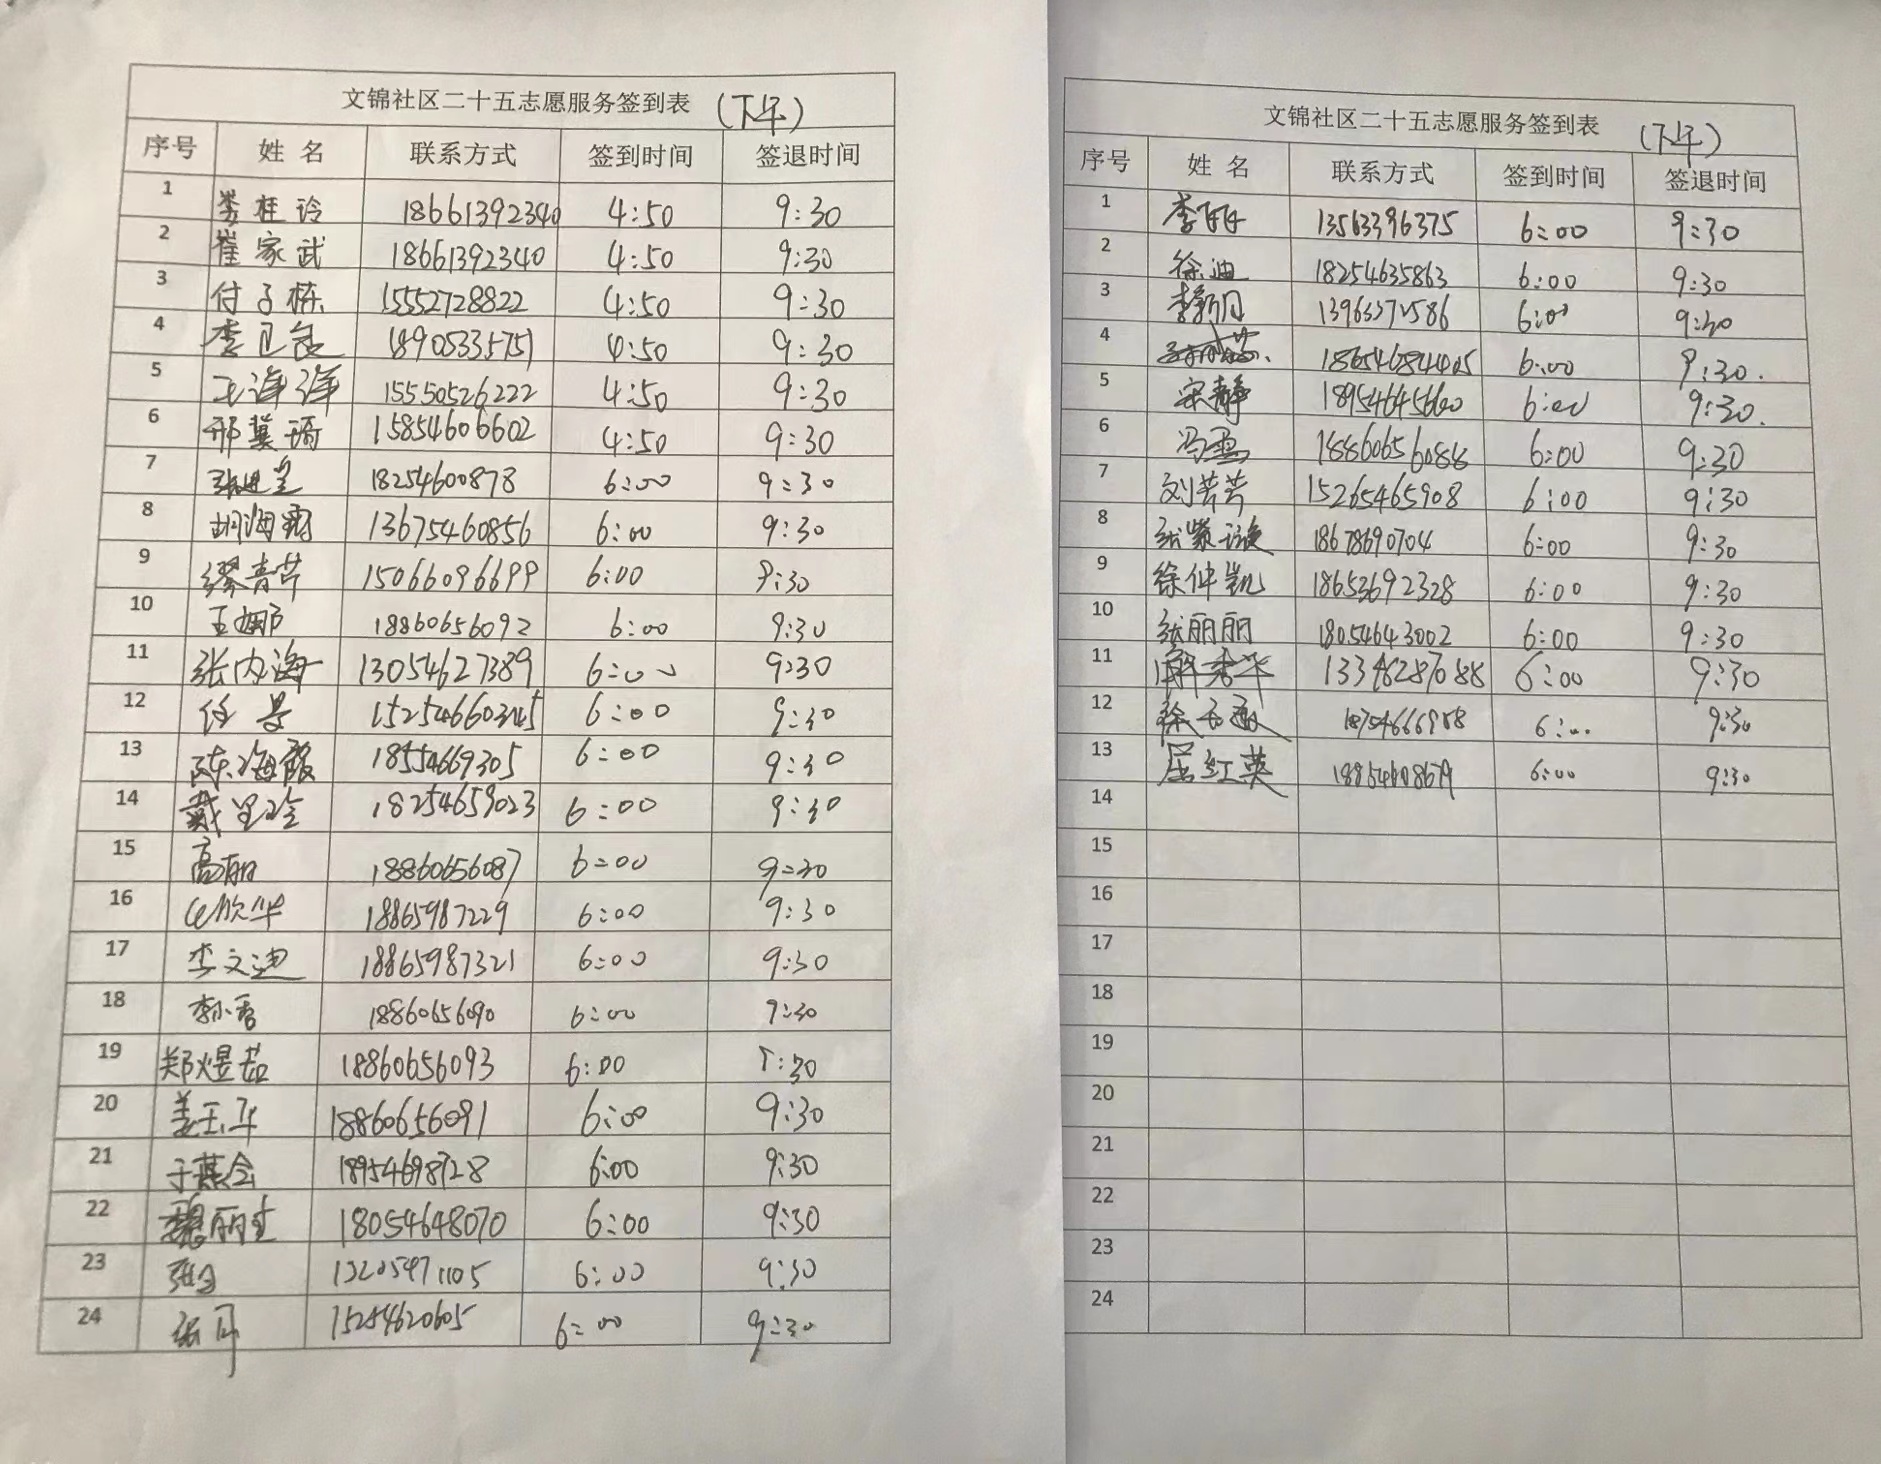 文锦社区二十五志愿服务签到表 (下午)
序号 姓名 联系方式 签到时间 签退时间
1 娄桂玲 18661392340 4:50 9:30
2 崔家武 18661392340 4:50 9:30
3 付子栋 15552728822 4:50 9:30
4 李 18905335751 4:50 9:30
5 王海洋 15550526222 4:50 9:30
6 邢冀琦 15854606602 4:50 9:30
7 张进宝 18254600878 6:00 9:30
8 胡海霞 13675460856 6:00 9:30
9 缪青芹 15066096699 6:00 9:30
10 王娜 18860656092 6:00 9:30
11 张内海 13054627389 6:00 9:30
12 任景 6:00 9:30
13 陈海霞 18554669305 6:00 9:30
14 戴 18254659023 6:00 9:30
15 高丽 18860656087 6:00 9:30
16 18865987229 6:00 9:30
17 李文迪 18865987321 6:00 9:30
18 李小香 18860656090 6:00 9:30
19 郑煜茹 18860656093 6:00 9:30
20 姜玉华 18860656091 6:00 9:30
21 于燕会 18954698728 6:00 9:30
22 魏丽 18054648070 6:00 9:30
23 13205471105 6:00 9:30
24 张丹 15254620605 6:00 9:30
文锦社区二十五志愿服务签到表 (下午)
序号 姓名 联系方式 签到时间 签退时间
1 李 13563396375 6:00 9:30
2 徐迪 18254635863 6:00 9:30
3 李新月 13963372586 6:00 9:30
4 6:00 9:30.
5 宋静 18954645660 6:00 9:30.
6 冯雪 18860656088 6:00 9:30
7 刘芳芳 15265465908 6:00 9:30
8 张紫璇 18678690704 6:00 9:30
9 徐仲凯 18653692328 6:00 9:30
10 张丽丽 18054643002 6:00 9:30
11 6:00 9:30
12 徐 18754666988 6:00 9:30
13 屈红英 18854608679 6:00 9:30
14
15
16
17
18
19
20
21
22
23
24